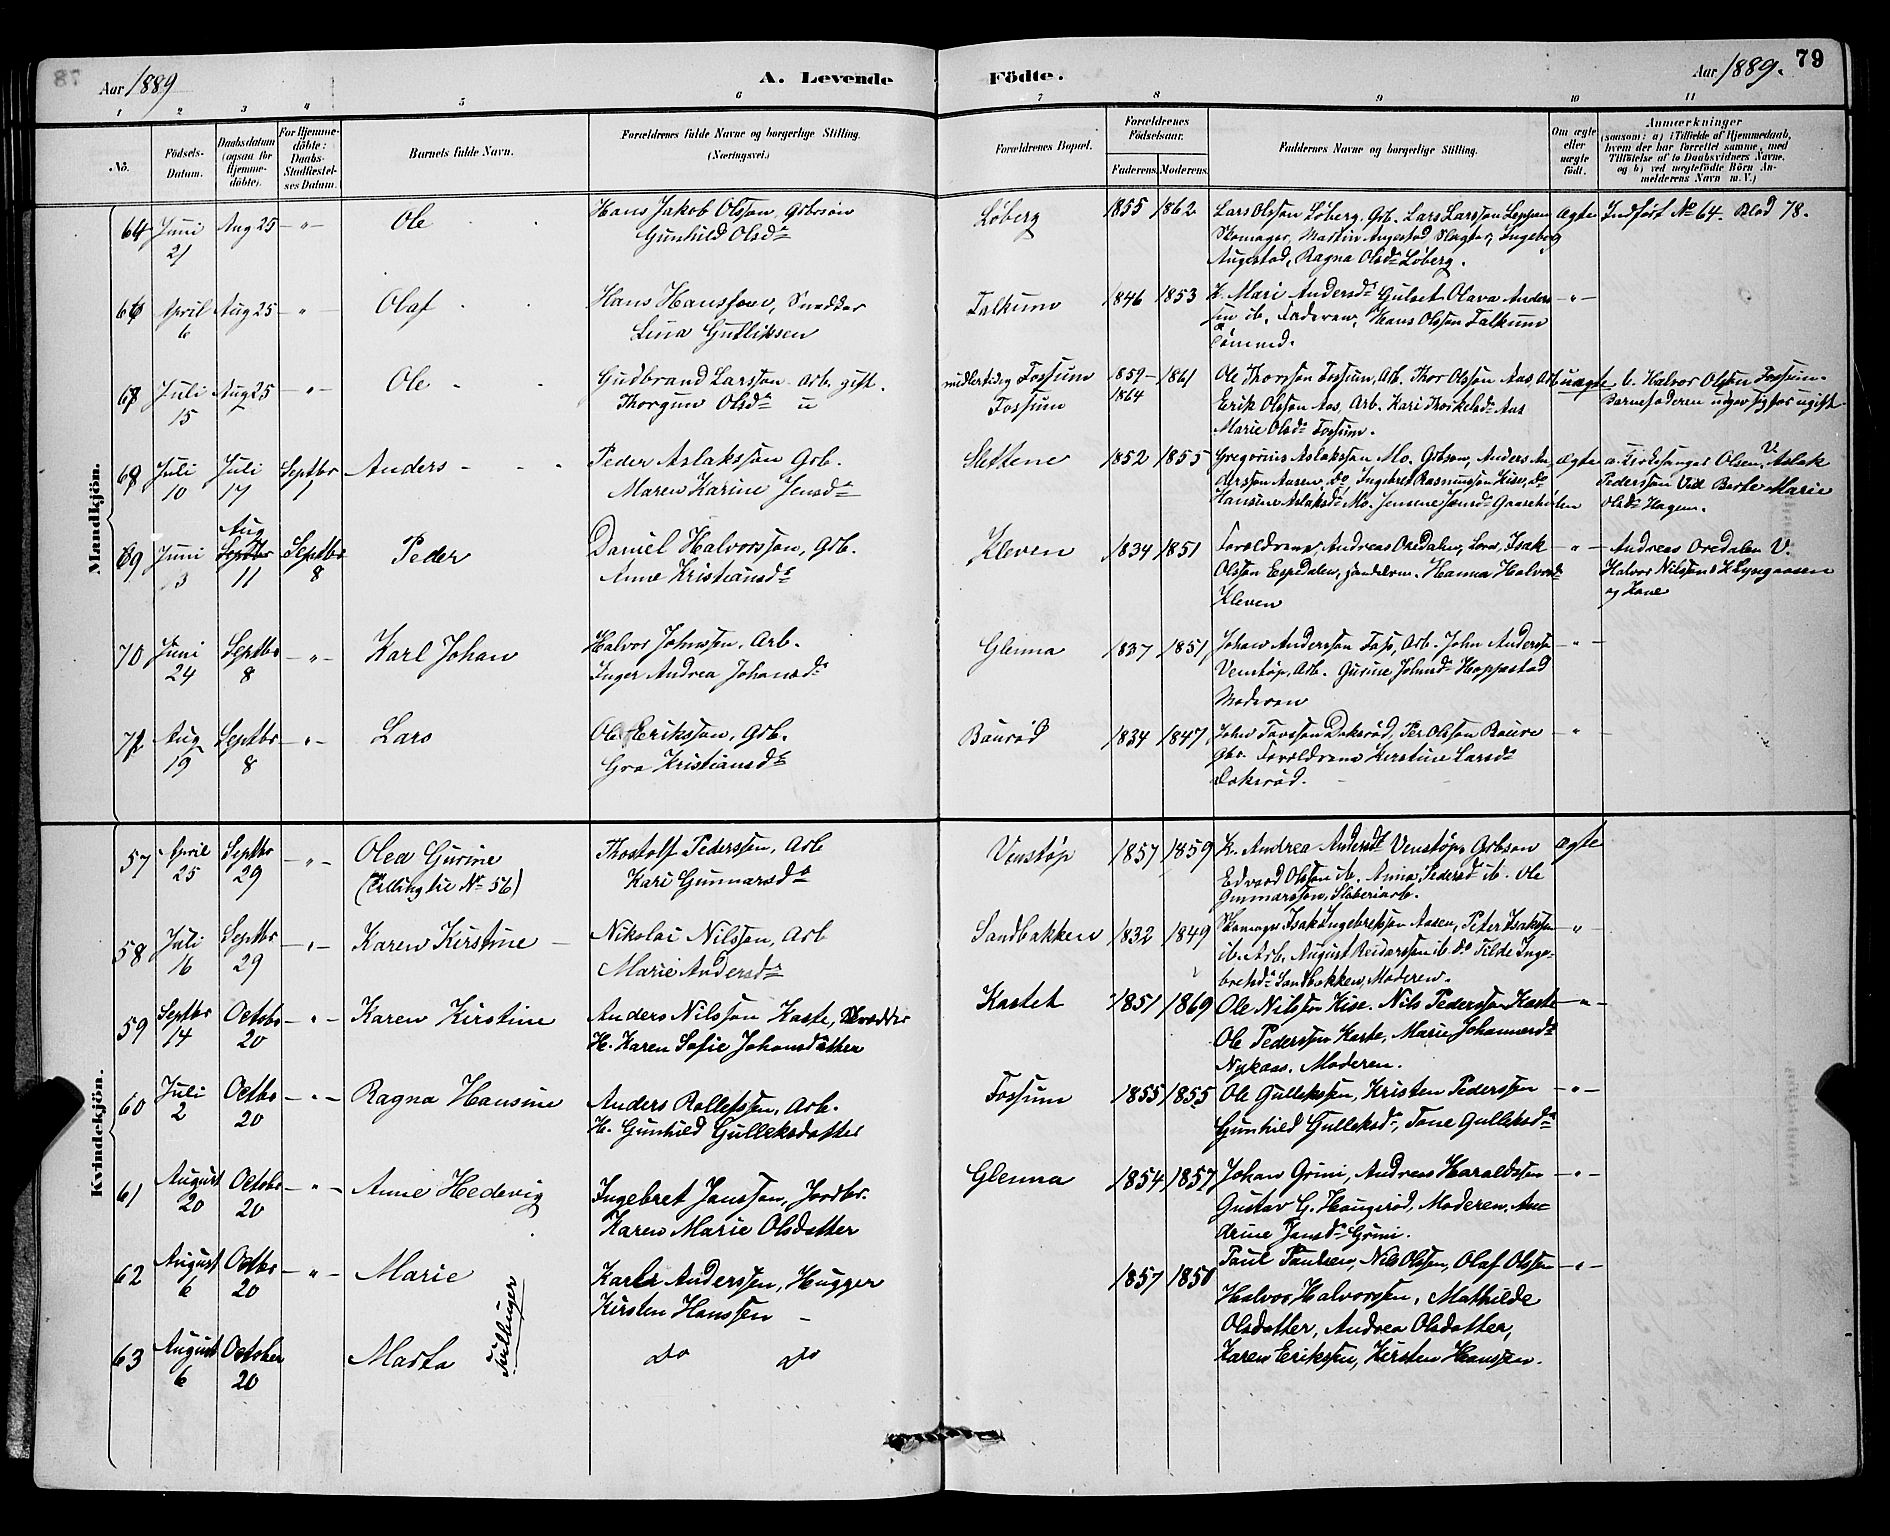 78
Aar 1889
A. Levende
Födte.
Aar 1889.
79
1 2 3 4 5 6 7 8 9 10 11
No.
Födsels-Datum.
Daabsdatum (ogsaa for Hjemme-döbte).
For Hjemme-döbte: Daabs-Stadfæstel-ses Datum.
Barnets fulde Navn.
Forældrenes fulde Navne og borgerlige Stilling. (Næringsvei.)
Forældrenes Bopæl.
Forældrenes Födselsaar.
Faderens. Moderens.
Faddernes Navne og borgerlige Stilling.
Om ægte eller uægte födt.
Anmærkninger
(saasom: a) i Tilfælde af Hjemmedaab,
hvem der har forrettet samme, med
Tilföielse af to Daabsvidners Navne,
og b) ved uægtefödte Börn An-
melderens Navn m. V.)
Mandkjön.
64 Juni 21 Aug 25 - " - Ole
Hans Jakob Olsson, Gbrsön
Gunhild Olsdr
Löberg 1855 1862
Lars Olsson Löberg, Grb. Lars Larsson Leppen
Skomager, Martin Augestad Slagter, Ingeborg
Augestad, Ragna Olsdr Löberg.
ægte
Indført No 64. Blad 78.
66 April 6 Aug 25 - " - Olaf
Hans Hansson, Snedker
Lina Gulliksen
Falkum 1846 1853
K. Mari Andersdr Gulset, Olava Anders
sen ib. Faderen, Hans Olsson Falkum
Tömmed.
- " -
67 Juli 15 Aug 25 - " - Ole
Gudbrand Larsson Arb. gift.
Thorgun Olsdr u
midlertidig Fossum
Fossum
1859 - 1861
1864
Ole Thorsson Fossum, Arb. Thor Olsson Aas, Arb
Erik Olsson Aas, Arb. Kari Thorkelsdr Aas
Marie Olsdr Fossum.
uægte
b. Halvor Olsen Fossum.
Barnefaderen udgav sig for ugift.
68 Juli 10 Juli 17 Septbr 1 Anders
Peder Aslaksson Grb.
Maren Karine Jensdr
Slettene 1852 1855
Gregorius Aslaksson Mo, Gbrson, Anders An
dersson Aasen, do Ingebret Rasmusson Kise, do
Hansine Aslaksdr Mo. Jensine Jensdr Gaaseholen
ægte
a. Kirkesanger Olsen, V. Aslak
Pedersson Vid Berte Marie
Olsdr Hagen.
69 Juni 13 Aug 11 Septbr 8 Peder
Daniel Halvorsson, Grb.
Anne Kristiansdr
Kleven 1834 1851
Forældrene, Andreas Oredalen, Isak
Olsson Espedalen, Hanna Halvorsdr
Kleven
- " -
Andreas Oredalen V.
Halvor Nilssen Lyngaasen
og Kone
70 Juni 24 Septbr 8 - " - Karl Johan
Halvor Johnssen, Arb.
Inger Andrea Johansdr
Glenna 1837 1851
Johan Andersson Fos, Arb. John Andersse
Venstöp, Arb. Gurine Johnsdr Hoppestad
Moderen
- " -
71 Aug 19 Septbr 8 - " - Lars
Ole Eriksson, Grb.
Gro Kristiansdr
Baurød 1834 1847
John Torsson Doksrød, Per Olsson Baure
Gbr. Forældrene Kirstine Larsdr
Doksrød.
- " -
Kvindekjön.
57 April 25 Septbr 29 - " - Olea Gurine
(Tvilling til No 56)
Thostolf Pederssen, Arb
Kari Gunnarsdr
Venstøp 1857 1859
K. Andrea Andersdr Venstøp, Gbrson
Edvard Olsson ib. Anna Pedersdr ib. Ole
Gunnarsson, Sliberiarb.
ægte
58 Juli 16 Septbr 29 - " - Karen Kirstine
Nikolai Nilsson, Arb
Marie Andersdr
Sandbakken 1832 1849
Skomager Isak Ingebretsson Aasen, Peter Isaksson
ib. Arb. August Reiersson ib. do Tilde Inge-
bretsdr Sandbakken, Moderen.
- " -
59 Septbr 14 Octobr 20 - " - Karen Kirstine
Anders Nilsson Kaste, Skrædder
H. Karen Sofie Johansdatter
Kastet 1851 1869
Ole Nilsson Kise. Nils Pedersson Kaste
Ole Pedersson Kaste, Marie Johannesdr
Nykaas. Moderen.
- " -
60 Juli 2 Octbr 20 - " - Ragna Hansine
Anders Rollefssen, Arb.
H. Gunhild Gulleksdatter
Fossum 1855 1855
Ole Gulleksen, Kristen Pederssen
Gunhild Gulleksdr, Tone Gulleksdr
- " -
61 August 20 Octobr 20 - " - Anne Hedevig
Ingebret Jansson, Jordbr.
Karen Marie Olsdatter
Glenna 1854 1857
Johan Grini, Andreas Haraldssen
Gustav G. Haugerød, Moderen, An-
drine Jansdr Grini.
- " -
62 August 6 Octbr 20 - " - Marie
Tvillinger
Karl Anderssen, Hugger
Kirsten Hanssen
1857 1850
Paul Paulsen, Nils Olssen, Olaf Olssen
Halvor Halvorssen, Mathilde
Olsdatter, Andrea Olsdatter,
Karen Erikssen, Kirsten Hanssen.
- " -
63 August 6 October 20 Marta
do do